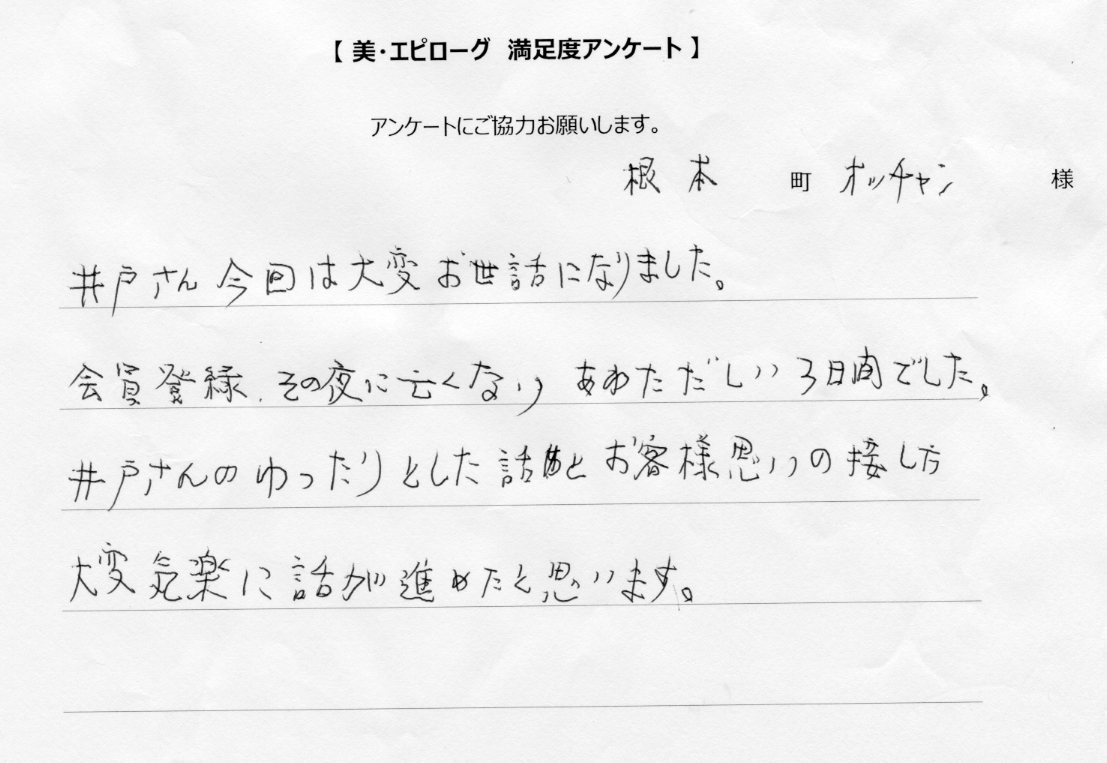 【 美・エピローグ 満足度アンケート 】
アンケートにご協力お願いします。
根本 町 オッチャン 様
井戸さん今回は大変お世話になりました。
会員登録、その夜に亡くなり あわただしい3日間でした。
井戸さんのゆったりとした話と お客様思いの接し方
大変気楽に話が進めたと思います。